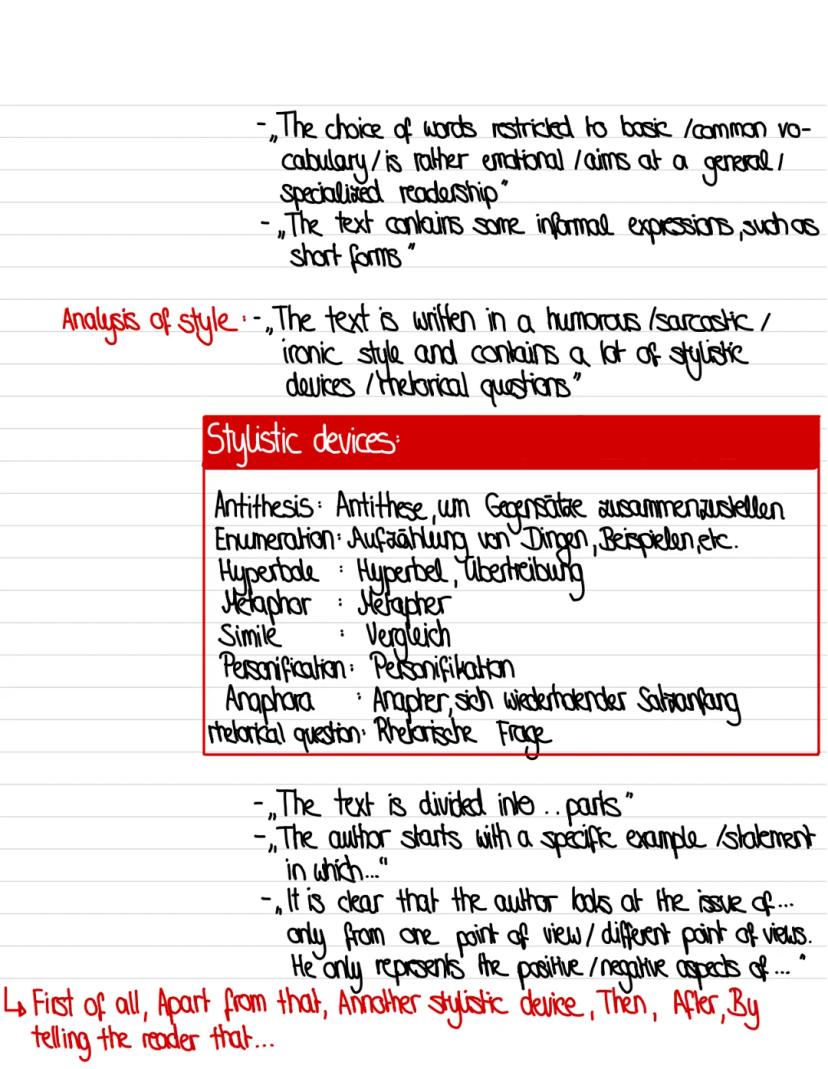 - „The choice of words restricted to basic /common vo-
cabulary / is rather emotional /aims at a general /
specialized readership"
- „The text contains some informal expressions, such as
short forms"
Analysis of style: - „The text is written in a humorous /sarcastic /
ironic style and contains a lot of stylistic
devices /rhetorical questions"
Stylistic devices:
Antithesis: Antithese, um Gegensätze zusammenzustellen
Enumeration: Aufzählung von Dingen, Beispielen, etc.
Hyperbole : Hyperbel, Übertreibung
Metaphor : Metapher
Simile : Vergleich
Personification: Personifikation
Anaphora : Anapher, sich wiederholender Satzanfang
rhetorical question: Rhetorische Frage
- „The text is divided into .. parts"
- „The author starts with a specific example /statement
in which..."
- „It is clear that the author looks at the issue of...
only from one point of view / different point of views.
He only represents the positive /negative aspects of ... "
↳ First of all, Apart from that, Annother stylistic device, Then, After, By
telling the reader that...